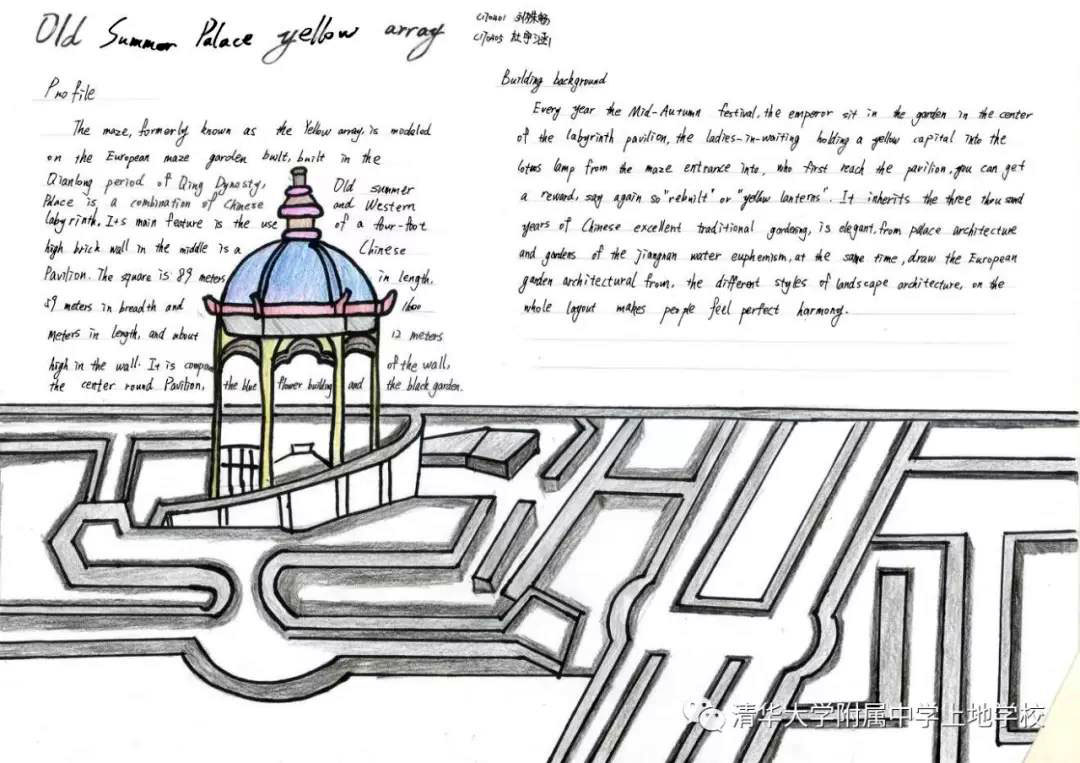 Old Summer Palace yellow array
C170401
C170405
Profile
The maze, formerly known as the Yellow array, is modeled
on the European maze garden built, built in the
Qianlong period of Qing Dynasty, Old summer
Palace is a combination of Chinese and Western
labyrinth. Its main feature is the use of a four-foot
high brick wall in the middle is a Chinese
Pavilion. The square is 89 meters in length,
59 meters in breadth and 1600
meters in length, and about 12 meters
high in the wall. It is of the wall,
the center round Pavilion, the blue flower building and the black garden.
Building background
Every year the Mid-Autumn festival, the emperor sit in the garden in the center
of the labyrinth pavilion, the ladies-in-waiting holding a yellow capital into the
lotus lamp from the maze entrance into, who first reach the pavilion, you can get
a reward, say again so "rebuilt" or "yellow lanterns". It inherits the three thousand
years of Chinese excellent traditional gardening, is elegant, from palace architecture
and gardens of the jiangnan water euphemism, at the same time, draw the European
garden architectural from, the different styles of landscape architecture, on the
whole layout makes people feel perfect harmony.
清华大学附属中学上地学校